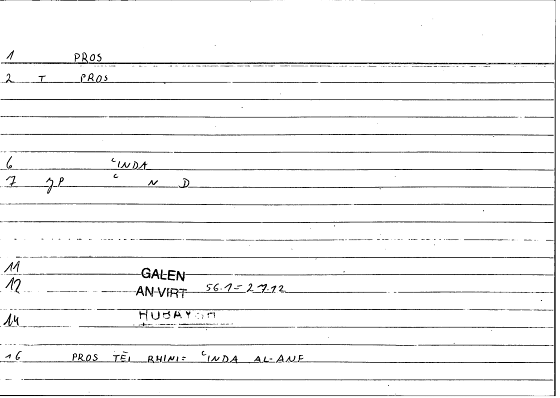 1 PROS
2 T PROS
6 ʿINDA
7 ʿ N D
11
12 GALEN
AN VIRT 56.1 = 27.12
14 HUBAYŠ
16 PROS TĒI RHINI = ʿINDA AL-ANF